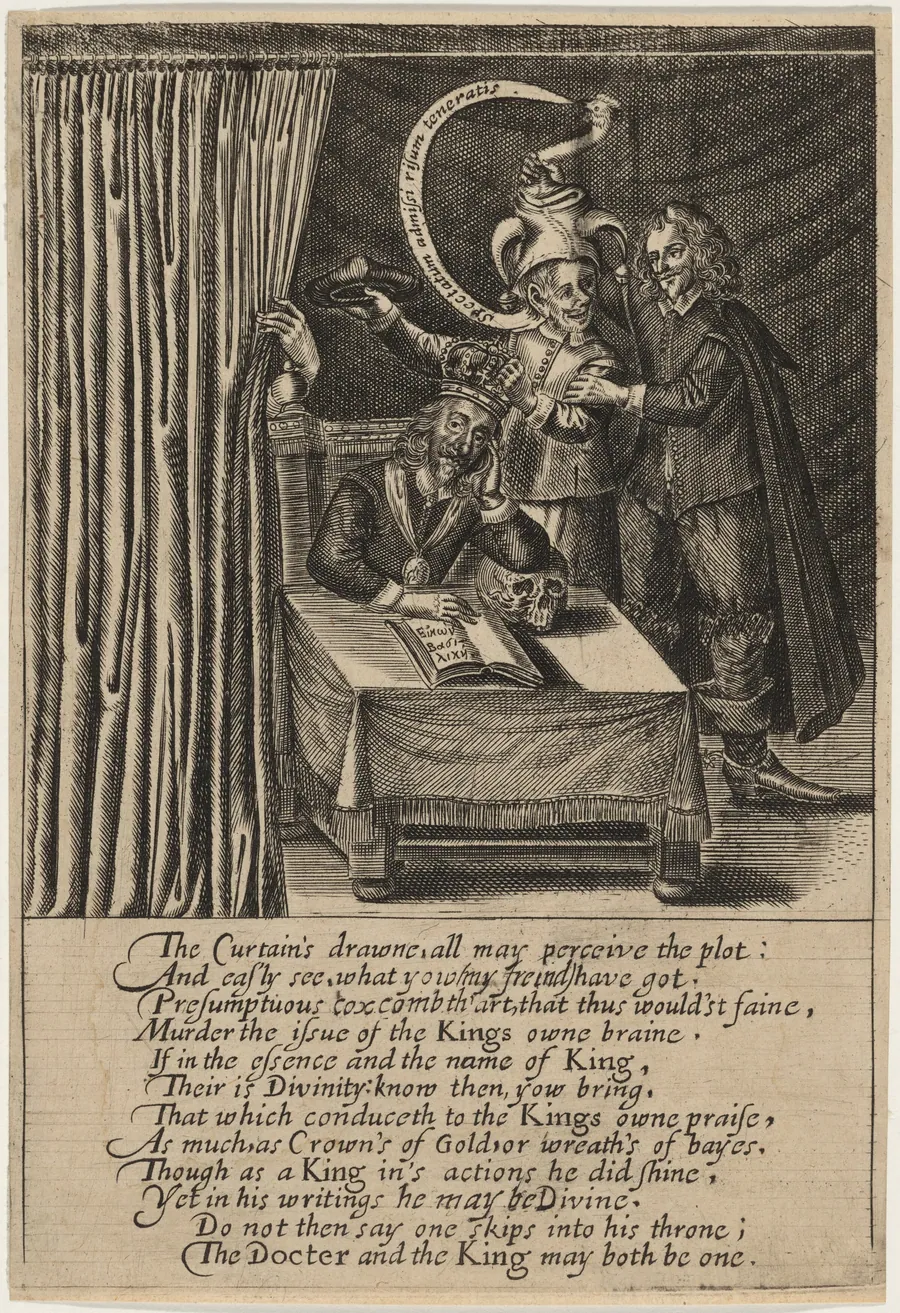 Spectatum admiſsi riſum teneratis.
Εἰκων
Βασι-
λικη
The Curtain's drawne, all may perceive the plot:
And eaſ'ly see, what yow (my freind) have got.
Preſumptuous coxcomb th'art, that thus would'st faine,
Murder the iſsue of the Kings owne braine.
If in the eſsence and the name of King,
Their is Divinity: know then, yow bring.
That which conduceth to the Kings owne praiſe,
As much, as Crown's of Gold, or wreath's of bayes.
Though as a King in's actions he did ſhine,
Yet in his writings he may be Divine.
Do not then say one skips into his throne;
The Docter and the King may both be one.